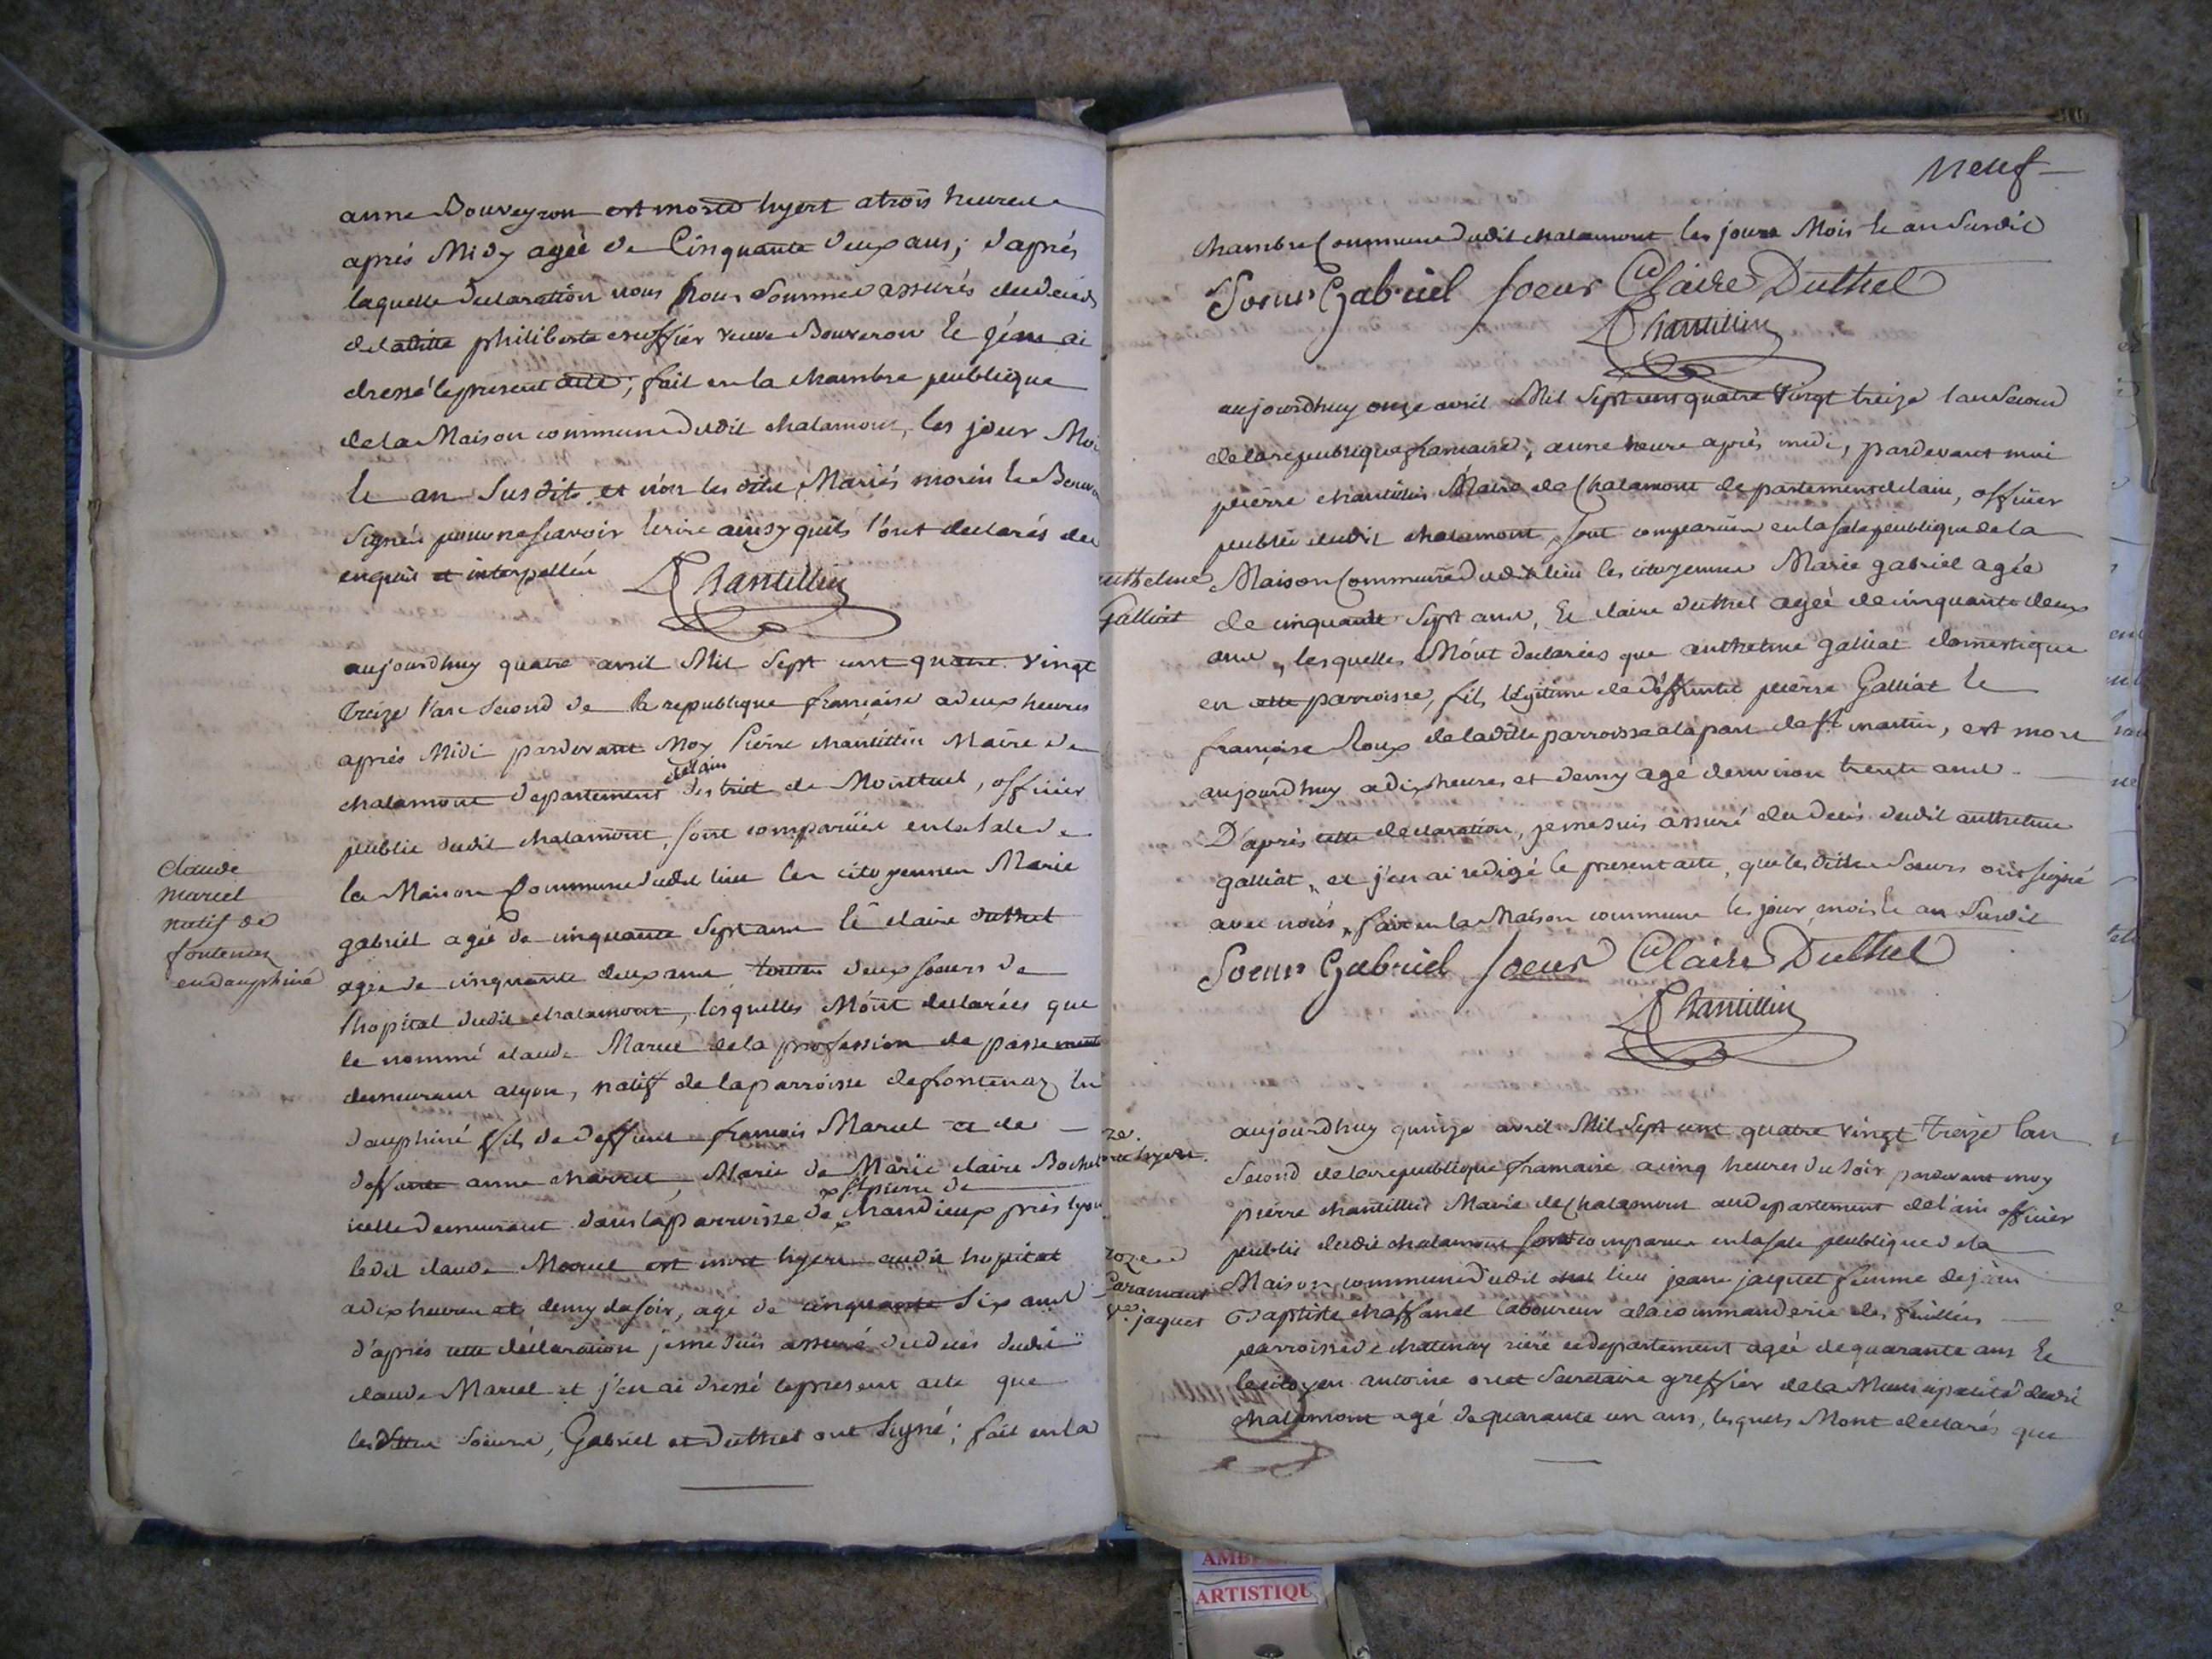 anne Bouveyron est morte hyert a trois heures
après Midy agée de Cinquante deux ans; d'aprés
laquelle declaration nous nous sommes assurés du decés
de laditte philiberte cruffier veuve Bouveron le j'en ai
dressé le present acte; fait en la chambre publique
de la Maison commune dudit chalamont, les jour Moi
le an susdits et n'on les dits Mariés morin le
signés pour ne sçavoir écrire ainsy quils l'ont declarés de
enquis et interpellés P Chantillin
aujourdhuy quatre avril Mil Sept cent quatre vingt
Treize l'an second de la republique françaisse a deux heures
après Midi pardevant Moy Pierre chantillin Maire de
delain
chalamont departement district de Montluel, officier
public dudit chalamont, sont comparües en la sale de
la Maison Commune dudit lieu les citoyennes Marie
gabriel agée de cinquante sept ans le claire duthel
agée de cinquante deux ans toutes deux soeurs de
l'hopital dudit chalamont, lesquelles M'ont declarées que
le nommé claude Marcel de la profession de passementi
demeurant a lyon, natif de la parroisse de fontenay En
dauphiné fils de deffunt françois Marcel et de
deffunte anne charret, Marie de Marie claire Bochet
x st pierre de
icelle demeurant dans la parroisse de x chandieux près lyon
ledit claude Marcel est mort hyere audit hopital
a dix heures et demy du soir, agé de cinquante six ans
d'après cette déclaration je me suis assuré du decés dudit
claude Marcel et j'en ai dressé le present acte que
lesdittes soeurs, Gabriel et Duthel ont signé; fait en la
claude
marcel
natif de
fontenay
en dauphiné
neuf
chambre Commune dudit chalamont les jours Mois le an susdit
Soeur Gabriel soeur Claire Duthel
P Chantillin
aujourdhuy onze avril Mil Sept cent quatre vingt treize l'an second
de la republique francaise, a une heure après midi, pardevant moi
pierre chantillin Maire de Chalamont departement de lain, officier
public dudit chalamont, sont comparües en la sale publique de la
Maison Commune dudit lieu les citoyennes Marie gabriel agée
de cinquante sept ans, Et claire duthel agée de cinquante deux
ans, lesquelles M'ont declarées que anthelme galliat domestique
en cette parroisse, fils légitime de déffunts pierre Galliat le
françoise Roux de laditte parroisse a la part de st martin, est mort
aujourdhuy a dix heures et demy agé d'environ trente ans
D'après cette declaration, je me suis assuré du decés dudit anthelme
galliat, et j'en ai redigé le present acte, que lesdittes soeurs ont signé
avec nous, fait en la Maison commune les jour, mois le an susdit
Soeur Gabriel soeur Claire Duthel
P Chantillin
anthelme
Galliat
aujourdhuy quinze avril Mil Sept cent quatre vingt Treize lan
Second de la republique francaise a cinq heures du soir pardevant moy
pierre chantillin Maire de Chalamont au departement de l'ain officier
public dudit chalamont sont comparus en la sale publique de la
Maison commune dudit lieu jeane jacquet femme de jean
Baptiste chaffanel laboureur a la commanderie des feuillés
parroisse de chatenay riére ce departement agée de quarante ans Et
le citoyen antoine oriet secretaire greffier de la Municipalité dudit
chalamont agé de quarante un ans, lesquels M'ont declarés que
jaquet
AMB
ARTISTIQU